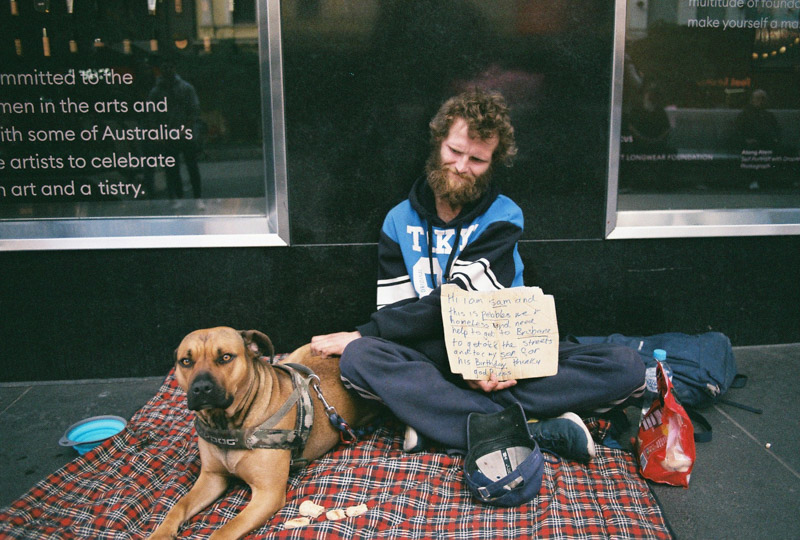 mmitted to the
men in the arts and
ith some of Australia's
e artists to celebrate
n art and a tistry.
multitude of founda
make yourself a ma
LONGWEAR FOUNDATION
TOKYO
DOG
Hi I am Sam and
this is pebbles we r
homeless and need
help to get to Brisbane
to get off the streets
and for my son 4 or
his Birthday. thankyou
god bless